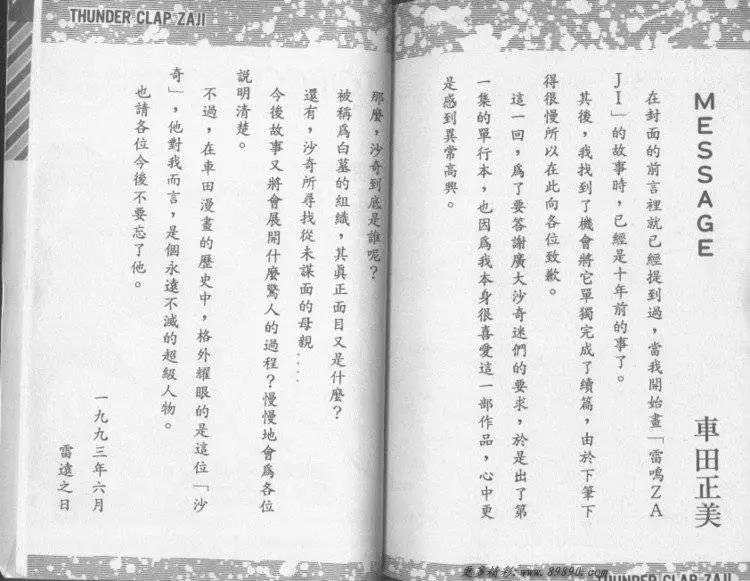 MESSAGE
車田正美
在封面的前言裡就已經提到過，當我開始畫「雷鳴ZA
JI」的故事時，已經是十年前的事了。
其後，我找到了機會將它單獨完成了續篇，由於下筆下
得很慢所以在此向各位致歉。
這一回，爲了要答謝廣大沙奇迷們的要求，於是出了第
一集的單行本，也因爲我本身很喜愛這一部作品，心中更
是感到異常高興。
THUNDER CLAP ZAJI
THUNDER CLAP ZAJI
那麼，沙奇到底是誰呢？
被稱爲白墓的組織，其眞正面目又是什麼？
還有，沙奇所尋找從未謀面的母親....
今後故事又將會展開什麼驚人的過程？慢慢地會爲各位
説明清楚。
不過，在車田漫畫的歷史中，格外耀眼的是這位「沙
奇」，他對我而言，是個永遠不滅的超級人物。
也請各位今後不要忘了他。
一九九三年六月
雷遠之日
www.89890.com